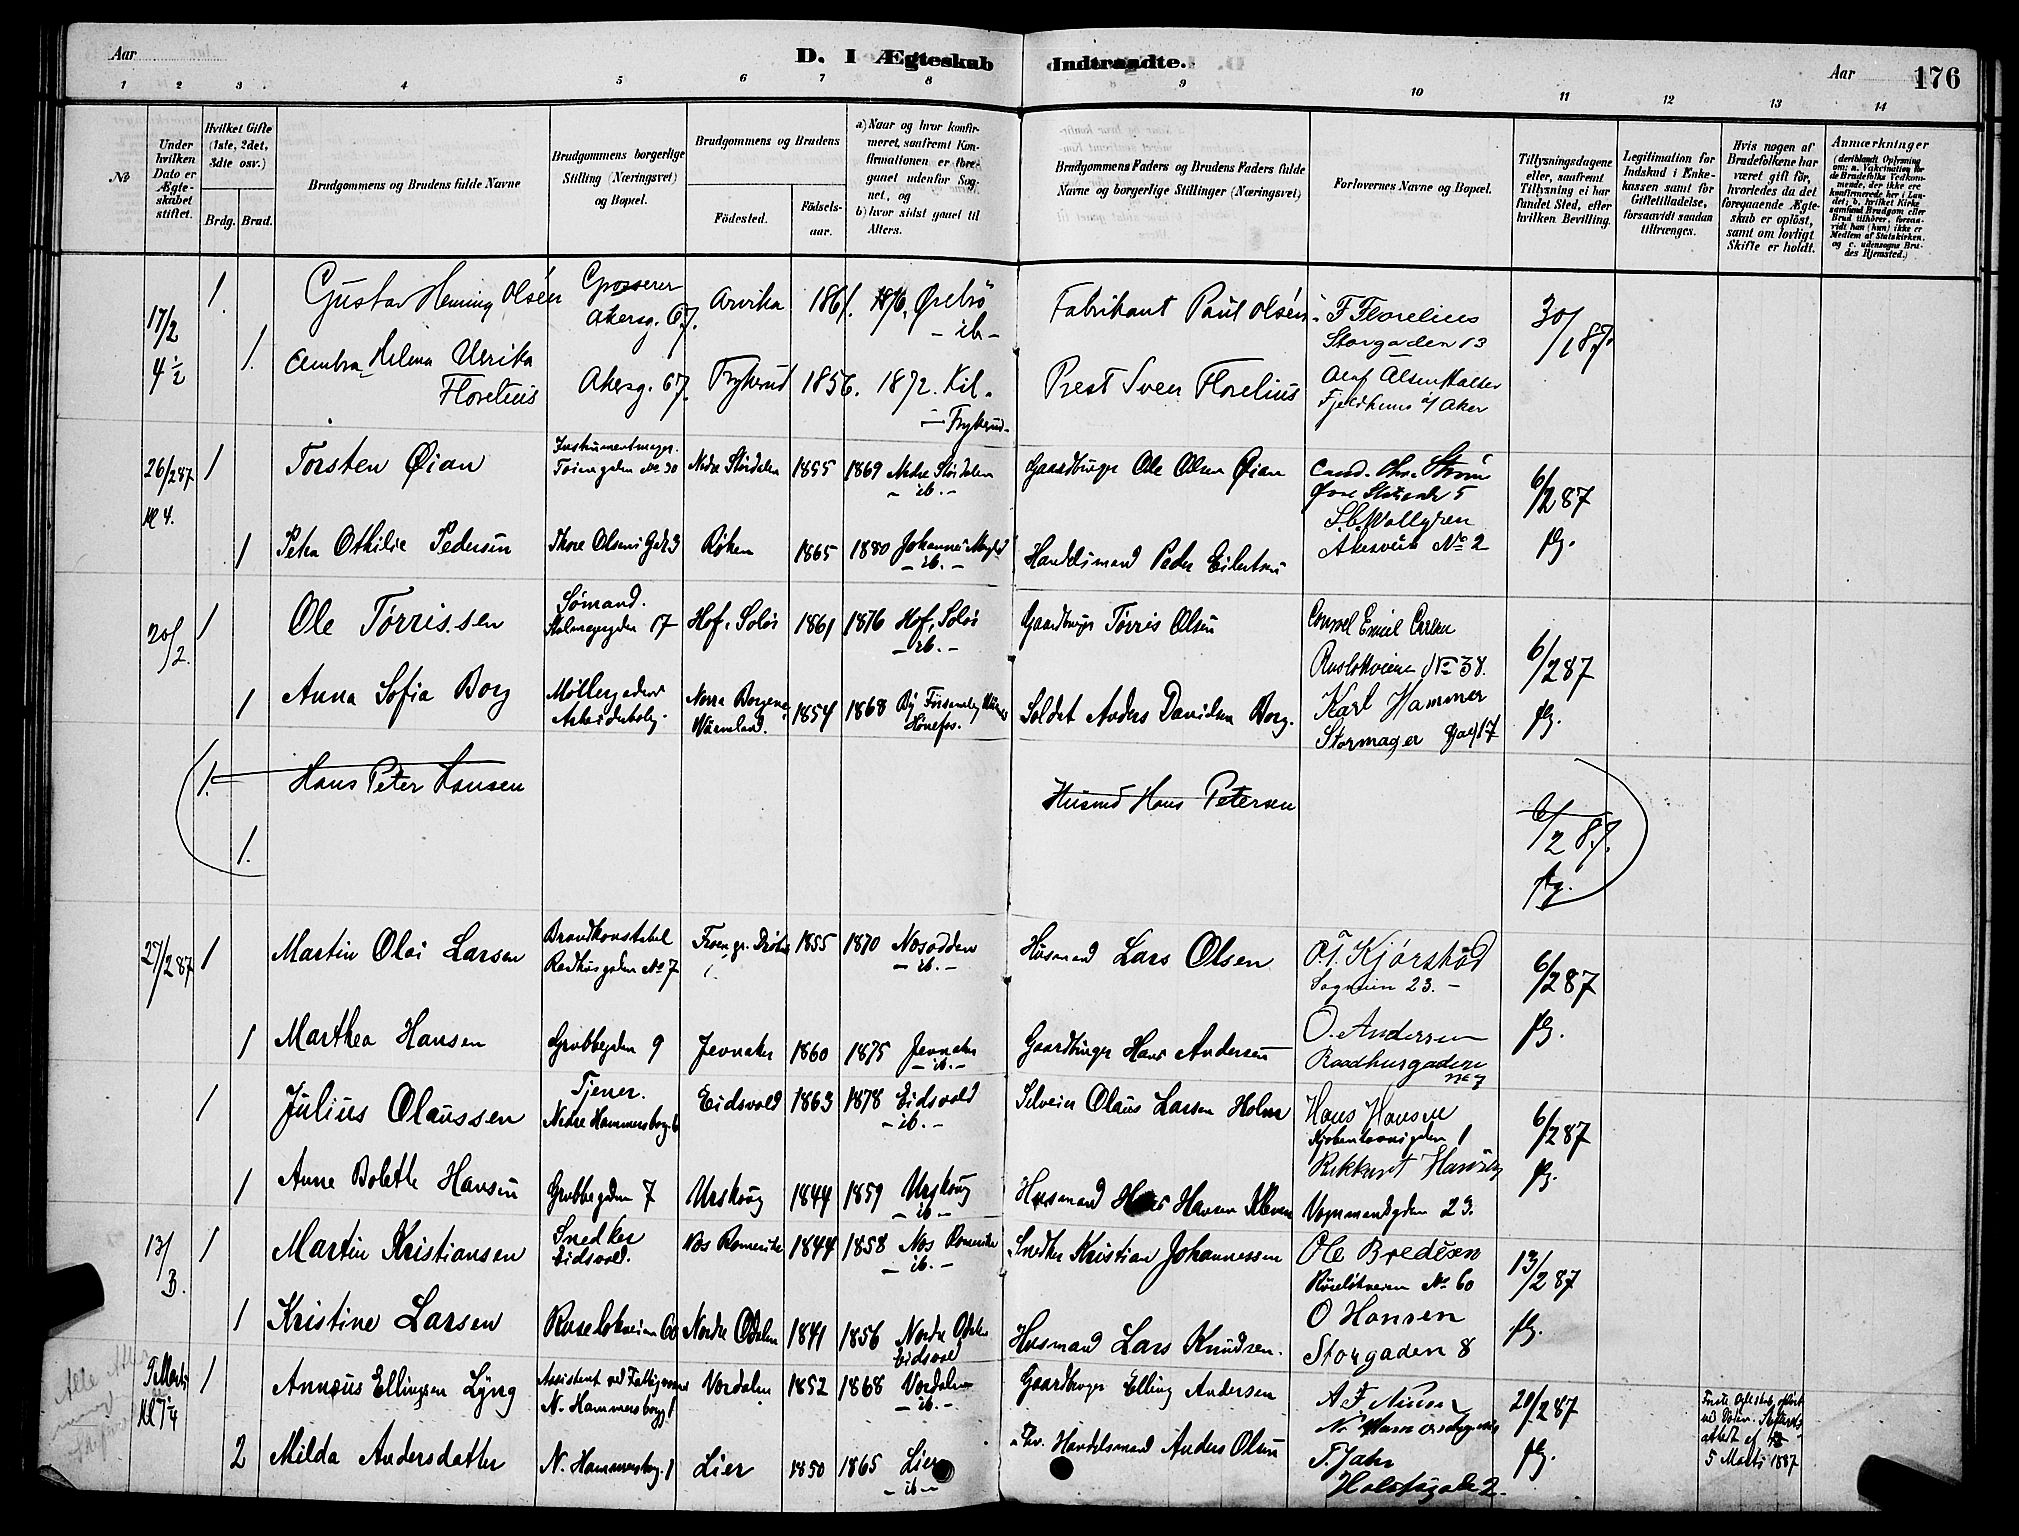 Aar
D. I Ægteskab Indtraadte.
Aar
176
1 2 3 4 5 6 7 8 9 10 11 12 13 14
No
Under hvilken Dato er Ægteskabet stiftet.
Hvilket Gifte (1ste, 2det, 3dte osv.)
Brdg. Brud.
Brudgommens og Brudens fulde Navne
Brudgommens borgerlige Stilling (Næringsvei) og Bopæl.
Brudgommens og Brudens
Fødested.
Fødselsaar.
a) Naar og hvor konfirmeret, saafremt Konfirmationen er foregaaet udenfor Sognet, og
b) hvor sidst gaaet til Alters.
Brudgommens Faders og Brudens Faders fulde Navne og borgerlige Stillinger (Næringsvei)
Forlovernes Navne og Bopæl.
Tillysningsdagene eller, saafremt Tillysning ei har fundet Sted, efter hvilken Bevilling.
Legitimation for Indskud i Enkekassen samt for Giftetilladelse, forsaavidt saadan tiltrænges.
Hvis nogen af Brudefolkene har været gift før, hvorledes da det foregaaende Ægteskab er opløst, samt om lovligt Skifte er holdt.
Anmærkninger
(deriblandt Oplysning om: a. Vakcination for de Brudefolks Vedkommende, der ikke ere konfirmerede her i Landet; b. hvilket Kirkesamfund Brudgom eller Brud tilhører, forsaavidt han (hun) ikke er Medlem af Statskirken, og c. udensogns Brudes Hjemsted.)
17/2 4½ 1. Gustav Hening Olsén Grosserer Akersg. 67. Arvika 1861. 1876, Örebrö - ib - Fabrikant Paul Olsén F Florelius Storgaden 13 30/1 87.
1. Helena Ulrika Florelius Akersg. 67. Frykerud 1856. 1872. Kil. Frykerud. Prest Sven Florelius Olaf Olsen Fjeldhuus i/ Aker
26/2 87 Kl 4. 1 Torsten Øian Instrumentmager. No 30 Nedre Stördalen 1855 1869 Nedre Stördalen - ib. - Gaardbruger Ole Olsen Øian Cand. Chr. Strøm 5 6/2 87
1 Petra Othilie Pedersen Thore Olsens Gade 3 Røken 1865 1880 Johannes - ib. - Handelsmand Peder Eilertsen Wallgren Akersveien No 2 fg.
20/2. 1 Ole Tørrissen Sømand. 17 Hof, Solör 1861 1876 Hof, Solör - ib. - Gaardbruger Tørris Olsen Emil Carlsen Ruseløkveien No 38. 6/2 87
1 Anna Sofia Borg Møllergadens Arbeiderbolig. Norra Wärmland. 1854 1868 By Hönefos. Soldat Anders Davidsen Borg. Karl Hammer 17 fg.
1. Hans Peter Hansen Husmd Hans Petersen 6/2 87. fg.
1.
27/2 87 1 Martin Olai Larsen Brandkonstabel Raadhusgaden No 7 1855 1870 Nesodden - ib. - Husmand Lars Olsen O. T. Kjørstad Sagveien 23. - 6/2 87
1 Marthea Hansen Grubbegaden 9 Jevnaker 1860 1875 Jevnaker - ib. - Gaardbruger Hans Andersen O. Andersen Raadhusgaden No 7 fg.
1 Julius Olaussen Tjener. Nedre Hammersborg 6 Eidsvold 1863 1878 Eidsvold - ib. - Selveier Olaus Larsen Holm Hans Hansen Kjøbenhavnsgaden 1 6/2 87
1 Anne Bolette Hansen Grubbegaden 7 Urskoug 1844 1859 Urskoug - ib. - Husmand Hans Hansen Rikkard Hansen Vognmandsgaden 23. fg.
13/3. 1 Martin Kristiansen Snedker Eidsvold. Næs Romerike 1844 1858 Næs Romerike - ib. - Snedker Kristian Johannessen Ole Bredesen Ruseløkveien No 60 13/2 87
1 Kristine Larsen Ruseløkveien 60 Nordre Odalen 1841 1856 Nordre Odalen Eidsvold Husmand Lars Knudsen. O Hansen Storgaden 8 fg.
Marts Kl 7¼ 1 Annæus Ellingsen Lyng Assistent ved N. Hammersborg 1 Værdalen 1852 1868 Værdalen - ib. - Gaardbruger Elling Andersen A. F. 20/2 87
2 Milda Andersdatter N. Hammersborg 1 Lier 1850 1865 Lier - ib - Handelsmand Anders Olsen T. Jahr Holstsgade 2. fg. 5 Marts 1887
Alle